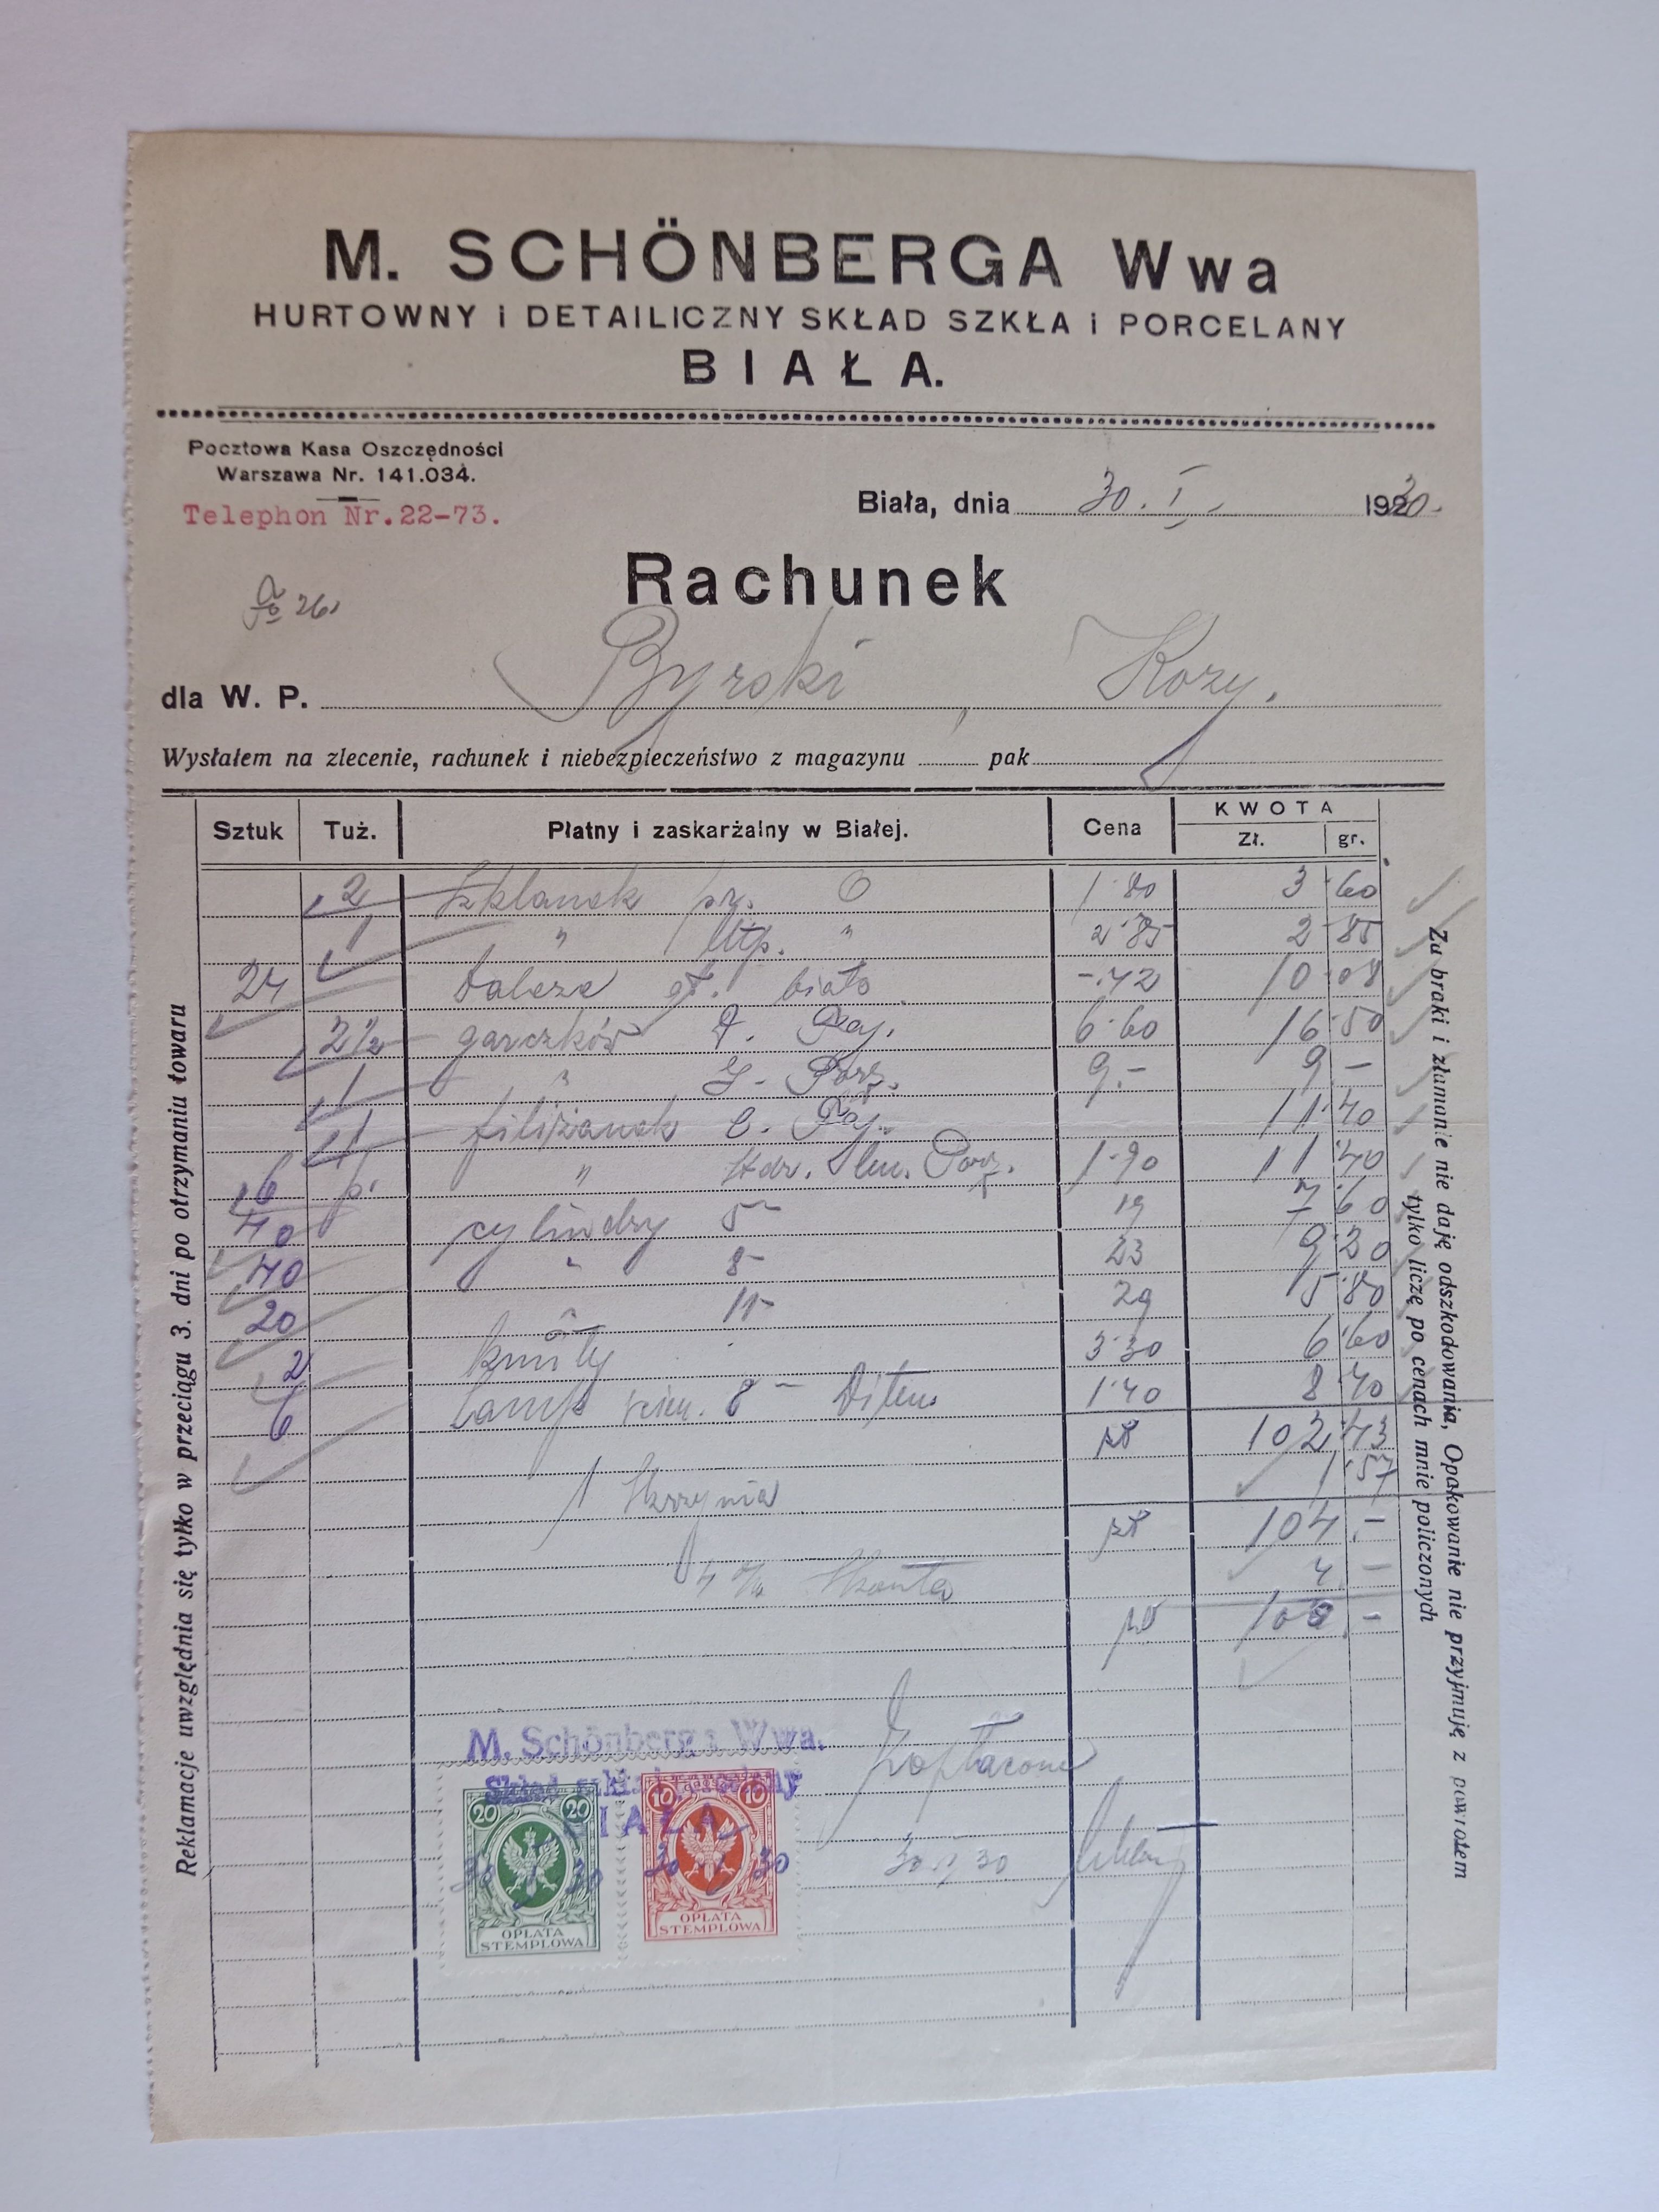 M. SCHÖNBERGA Wwa
HURTOWNY i DETAILICZNY SKŁAD SZKŁA i PORCELANY
BIAŁA.
Pocztowa Kasa Oszczędności
Warszawa Nr. 141.034.
Telephon Nr.22-73.
Biała, dnia 30. I. 1930.
Rachunek
26
dla W. P. Byrski, Kozy.
Wysłałem na zlecenie, rachunek i niebezpieczeństwo z magazynu pak
Sztuk Tuż. Płatny i zaskarżalny w Białej. Cena KWOTA
Zł. gr.
2 Szklanek pr. 0 1·80 3·60
1 " " 2·85 2·85
24 talerze gł. biało -·42 10·08
2½ garczków 6·60 16·50
1 " Porz. 9.- 9 -
1 filiżanek 11·40
6 p. " Porz. 1·90 11·40
40 cylindry 5''' 19 7·60
40 " 8''' 23 9·20
20 11''' 29 5·80
2 knoty 3·30 6·60
6 lamp 8''' 1·40 8·40
zł 102·43
1 Skrzynia 1·57
zł 104.-
4% Skonta 4.-
zł 100.-
Zapłacono
30. I. 30
M. Schönberga Wwa.
BIAŁA
20 20
10 10
30 I 30
30 I 30
OPŁATA
STEMPLOWA
OPŁATA
STEMPLOWA
Reklamacje uwzględnia się tylko w przeciągu 3. dni po otrzymaniu towaru
Za braki i złamanie nie daję odszkodowania, Opakowanie nie przyjmuję z powrotem
tylko liczę po cenach mnie policzonych